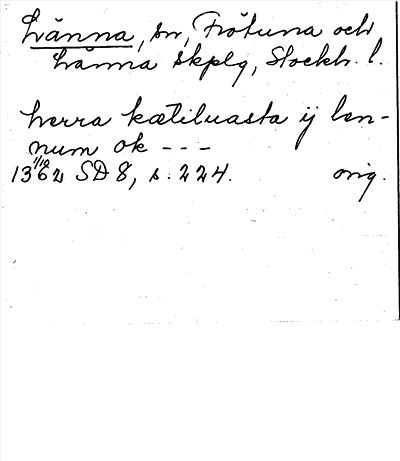 Länna, sn, Frötuna och
Länna skplg, Stockh. l.
herra kætiluasta ij læn-
num ok - - -
1/12
1362 SD 8, s. 224. orig.